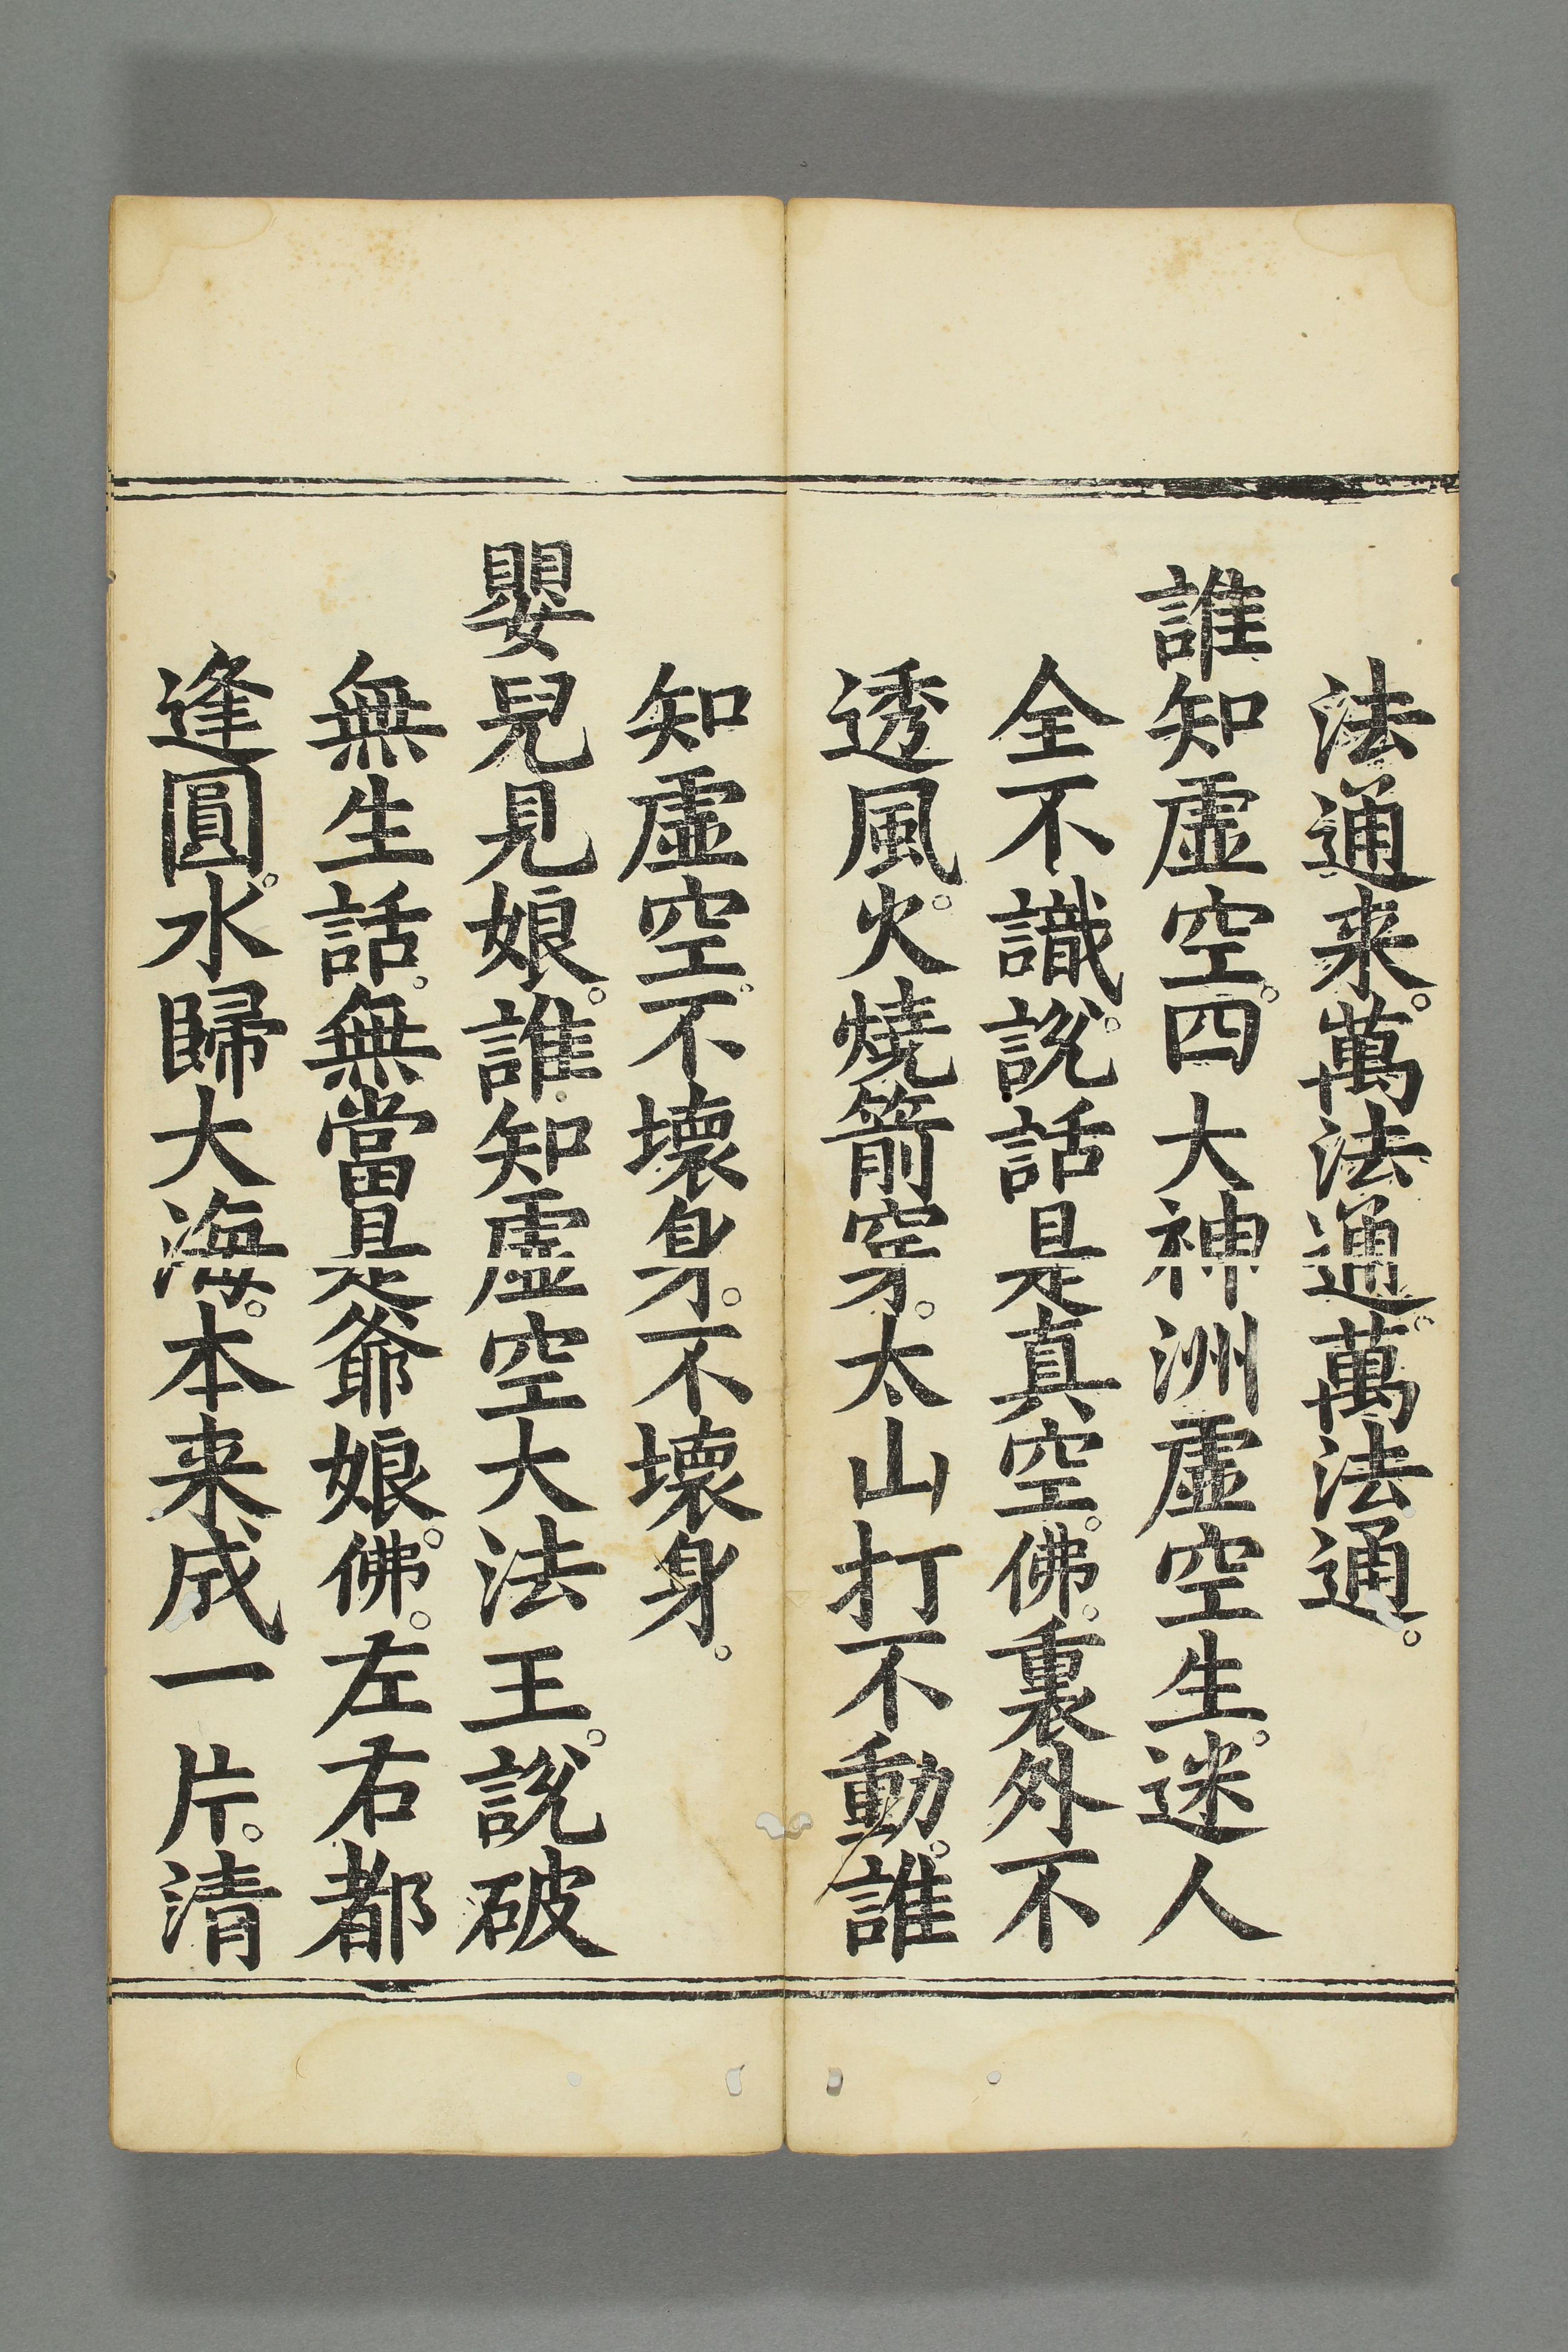 法通来。萬法通。萬法通。
誰知虛空。四大神洲虛空生。迷人
全不識。說話是真空。佛。裏外不
透風。火燒箭穿。太山打不動。誰
知虛空。不壞身。不壞身。
嬰兒見娘。誰知虛空大法王。說破
無生話。無當是爺娘。佛。左右都
逢圓。水歸大海。本来成一片。清